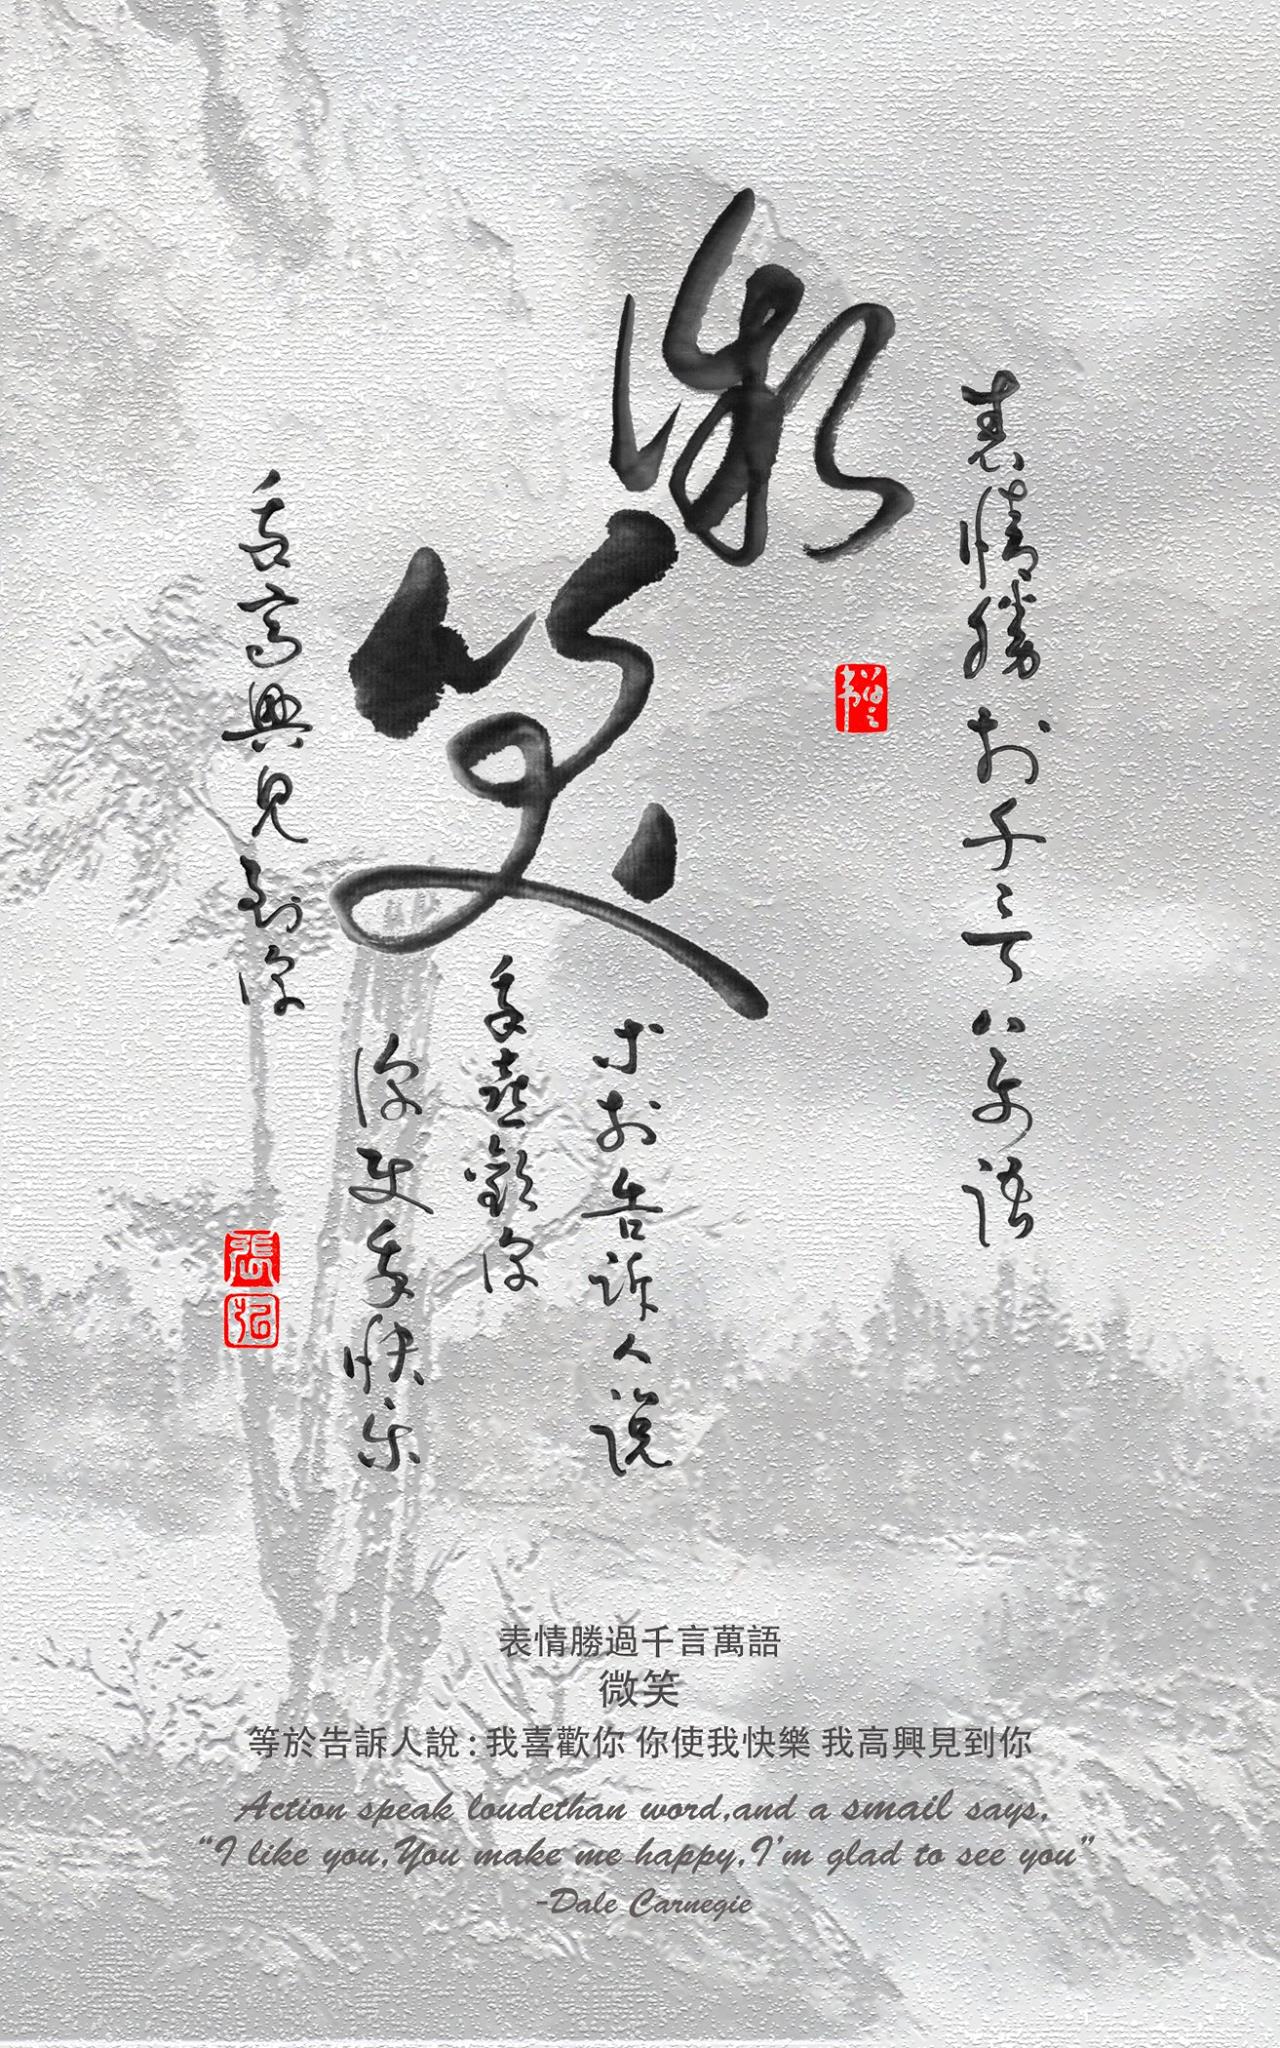 表情勝於千言萬語
微笑
等於告訴人說
我喜歡你
你使我快樂
高興見到你
張
表情勝過千言萬語
微笑
等於告訴人說：我喜歡你 你使我快樂 我高興見到你
Action speak loudethan word,and a smail says,
“I like you,You make me happy,I'm glad to see you”
-Dale Carnegie